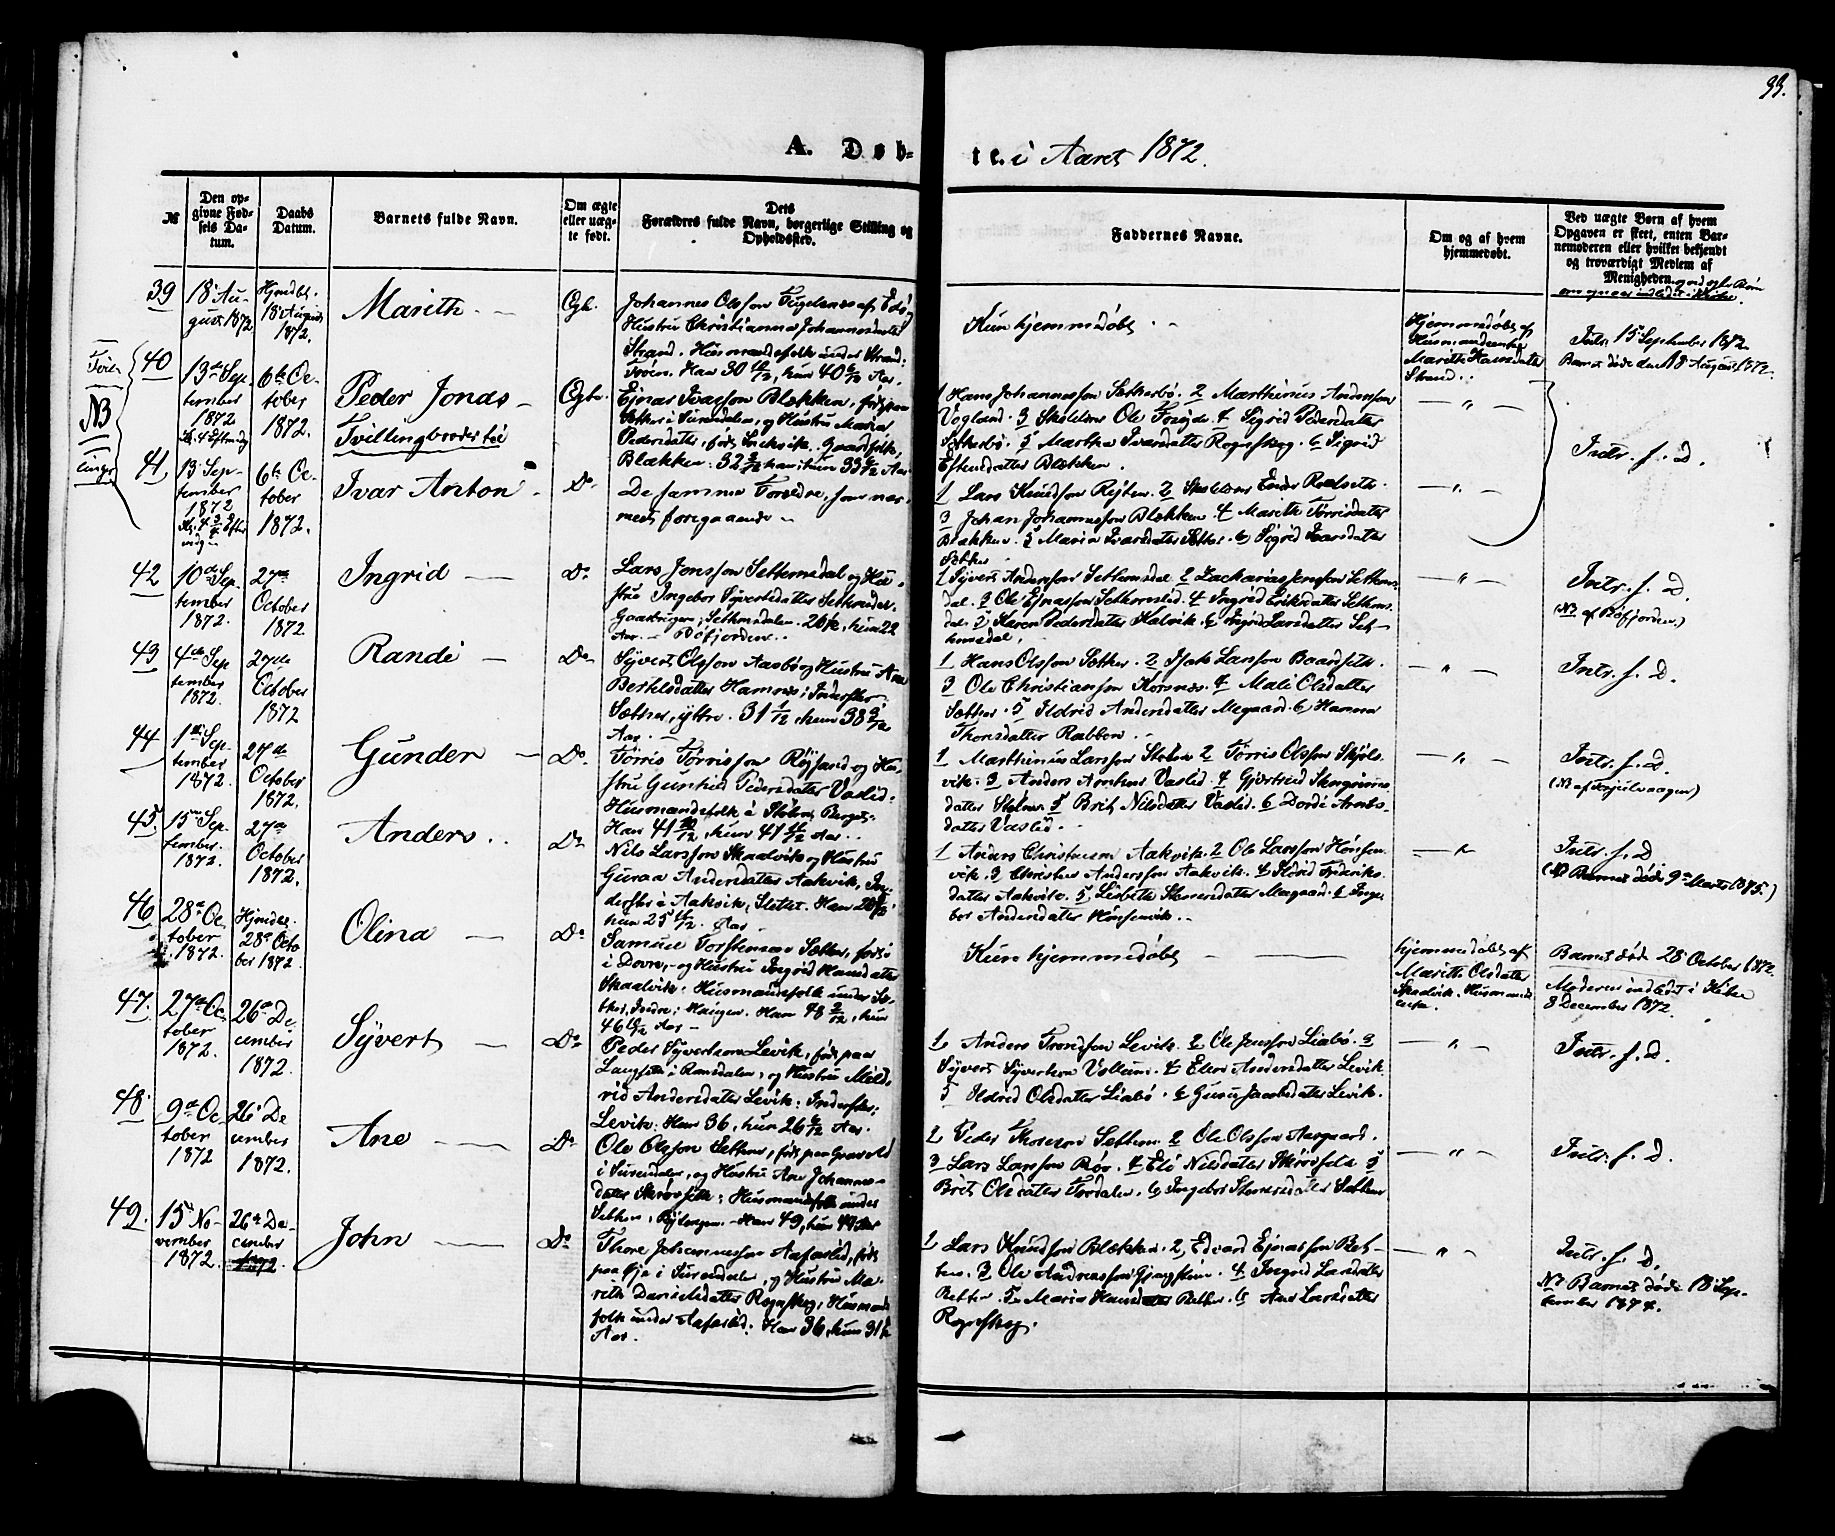 33.
A. Døb-
te i Aaret 1872.
№
Den op-
givne Fød-
sels Da-
tum.
Daabs
Datum.
Barnets fulde Navn.
Om ægte
eller uæg-
te født.
Dets
Forældres fulde Navn, borgerlige Stilling og
Opholdssted.
Faddernes Navne.
Om og af hvem
hjemmedøbt.
Ved uægte Børn af hvem
Opgaven er skeet, enten Bar-
nemoderen eller hvilket bekjendt
og troværdigt Medlem af
Menigheden.
39
18 Au-
gust 1872
Hjmdbt.
18 August
1872.
Marith
Ægte.
Johannes Olsson
Hustru Christianna Johannesdatter
Strand. Husmandsfolk under Strand:
Han 30 hun 40 6/12 Aar.
Kun hjemmedøbt
Hjemmedøbt af
Husmandsenke
Marith Hansdatter
Strand.
Intr. 15 September 1872.
Barnet døde den 18 August 1872.
Tvil-
NB
linge
40
13de Sep-
tember
1872
Kl. 4 Eftmdg
6te Oc-
tober
1872.
Peder Jonas
Tvillingbroder til
Ægte
Ejnar Ivarsson Blækken, født paa
Sæther i Surendalen, og Hustru Maria
Pedersdatter, født Gaardfolk,
Blækken: 32 han: hun 33 Aar
1 Hans Johannesson Sætherbø. 2 Marthinus Andersson
Vogland 3 Skolelær Ole 4 Sigrid Pedersdatter
Sætherbø. 5 Martha Ivarsdatter Rognskog. 6 Sigrid
Estensdatter Blækken.
41
13 Sep-
tember
1872
6te Oc-
tober
1872.
Ivar Anton
Do
De samme Forældre, som nær-
mest foregaaende
1 Lars Knudsson 2 Skolelærer
3 Johan Johannesson Blækken. 4 Marith Tørrisdatter
Blækken. 5 Maria Ivarsdatter Sæther. 6 Sigrid Ivarsdatter
Sæther
Intr. s. D.
42
10de Sep-
tember
1872.
27de
October
1872.
Ingrid
Do
Lars Jonsson Settemsdal og Hu-
stru Ingebor Syvertsdatter Settemsdal.
Settemsdalen. hun 22
Aar. Bøfjorden.
1 Syvert Andersson Settemsdal 2 Zacharias Jensson Settems-
dal. 3 Ole Ejnarsson Settemslid. 4 Ingrid Eriksdatter Settems-
dal. 5 Karen Pedersdatter Halvik. 6 Ingrid Larsdatter Set-
temsdal.
Intr. s. D.
(NB af Bøfjorden)
43
4de Sep
tember
1872.
27de
October
1872
Randi
Do
Syvert Olsson Aasbø og Hustru Ane
Bertelsdatter Hamnes; Inderster
Sæther, ytre. 31 1/12, hun 38 9/12
Aar.
1 Hans Olsson Sæther. 2 Isak Larsson Baardseth.
3 Ole Christiansson Korsnæs. 4 Mali Olsdatter
Sæther. 5 Ildrid Andersdatter Megaard. 6 Hanna
Thoresdatter Rabben.
Intr. s. D.
44
1ste Sep-
tember
1872.
27de
October
1872.
Gunder
Do
Tørris Tørrisson Røjsand og Hu-
stru Gunhild Pedersdatter Vaslid:
Husmandsfolk i
Han 41 10/12, hun 41 11/12 Aar.
1 Marthinus Larsson Stølen 2 Tørris Olsson Skjøls-
vik. 3 Anders Arntsen Vaslid. 4 Gjertrud
datter Stølen. 5 Brit Nilsdatter Vaslid. 6 Dordi Arnts-
datter Vaslid.
Intr. s. D.
(NB af Torjulvaagen)
45.
15de Sep-
tember.
1872.
27de
October
1872.
Anders
Do
Nils Larsson Skaalvik og Hustru
Guraa Andersdatter Aakvik, In-
derster i Aakvik, Slettet. Han
hun 25 11/12. Aar.
1 Anders Christensen Aakvik. 2 Ole Larsson Hønsen-
vik. 3 Christen Andersson Aakvik. 4 Ildrid Frederiks-
datter Aakvik. 5 Lisbeth Stenersdatter Megaard. 6 Inge-
bor Andersdatter Hønsenvik.
Intr. s. D
(NB Barnet døde 9de Marts 1875.)
46.
28de Oc-
tober
1872.
Hjmdbt.
28de Octo
ber 1872
Olina
Do
Samuel Torstensen Sæther, født
i Dovre, og Hustru Ingrid Hansdatter
Skaalvik: Husmandsfolk under Sæ-
ther, Indre; Haugen. Han 48 2/12, hun
46 Aar
Kun hjemmedøbt
Hjemmedøbt af
Marith Olsdatter
Skaalvik. Husmands
enke.
Barnet døde 28 October 1872.
Moderen indledt i Kirken
8 December 1872.
47.
27de Oc-
tober
1872.
26de De-
cember
1872.
Syvert
Do
Peder Syvertsen Levik, født paa
Langseth i Romsdalen, og Hustru Mild-
rid Andersdatter Levik: Inderster;
Levik: Han 36, hun 26 6/12 Aar.
1 Anders Trondson Levik. 2 Ole Jensson Liabø. 3
Syvert Syvertson Vollum. 4 Ellen Andersdatter Levik
5 Ildrid Olsdatter Liabø. 6 Guru Jacobsdatter Levik.
Intr. s. D.
48.
9de Oc-
tober
1872
26 De
cember
1872.
Ane
Do
Ole Olsson Settem, født paa
i Surendalen, og Hustru Ane Johannes-
datter Skrøvseth: Husmandsfolk under
Settem, Han 49, hun 49 Aar
1 Peder Thoreson Settem. 2 Ole Olsson Aasgaard.
3 Lars Larsson Bøv. 4 Eli Nilsdatter Skrøvseth 5
Brit Olsdatter Fordalen. 6 Ingebor Stenersdatter Settem
Intr. s. D.
49.
15de No-
vember
1872.
26de De-
cember
1872.
John
Do
Thore Johannesson Aafarslid, født
paa Øje i Surendalen, og Hustru Ma-
rith Danielsdatter Rognskog, Husmands
folk under Aafarslid: Han 36, hun 31
Aar.
1 Lars Knudsson Blækken. 2, Edvard Ejnarsson Bæl-
ten. 3 Ole Andreasson Gjengstøen. 4 Ingrid Larsdatter
5 Maria Hansdatter 6 Ane Larsdatter
Rognskog.
Intr. s. D.
NB Barnet døde 18 Sep-
tember 1874.